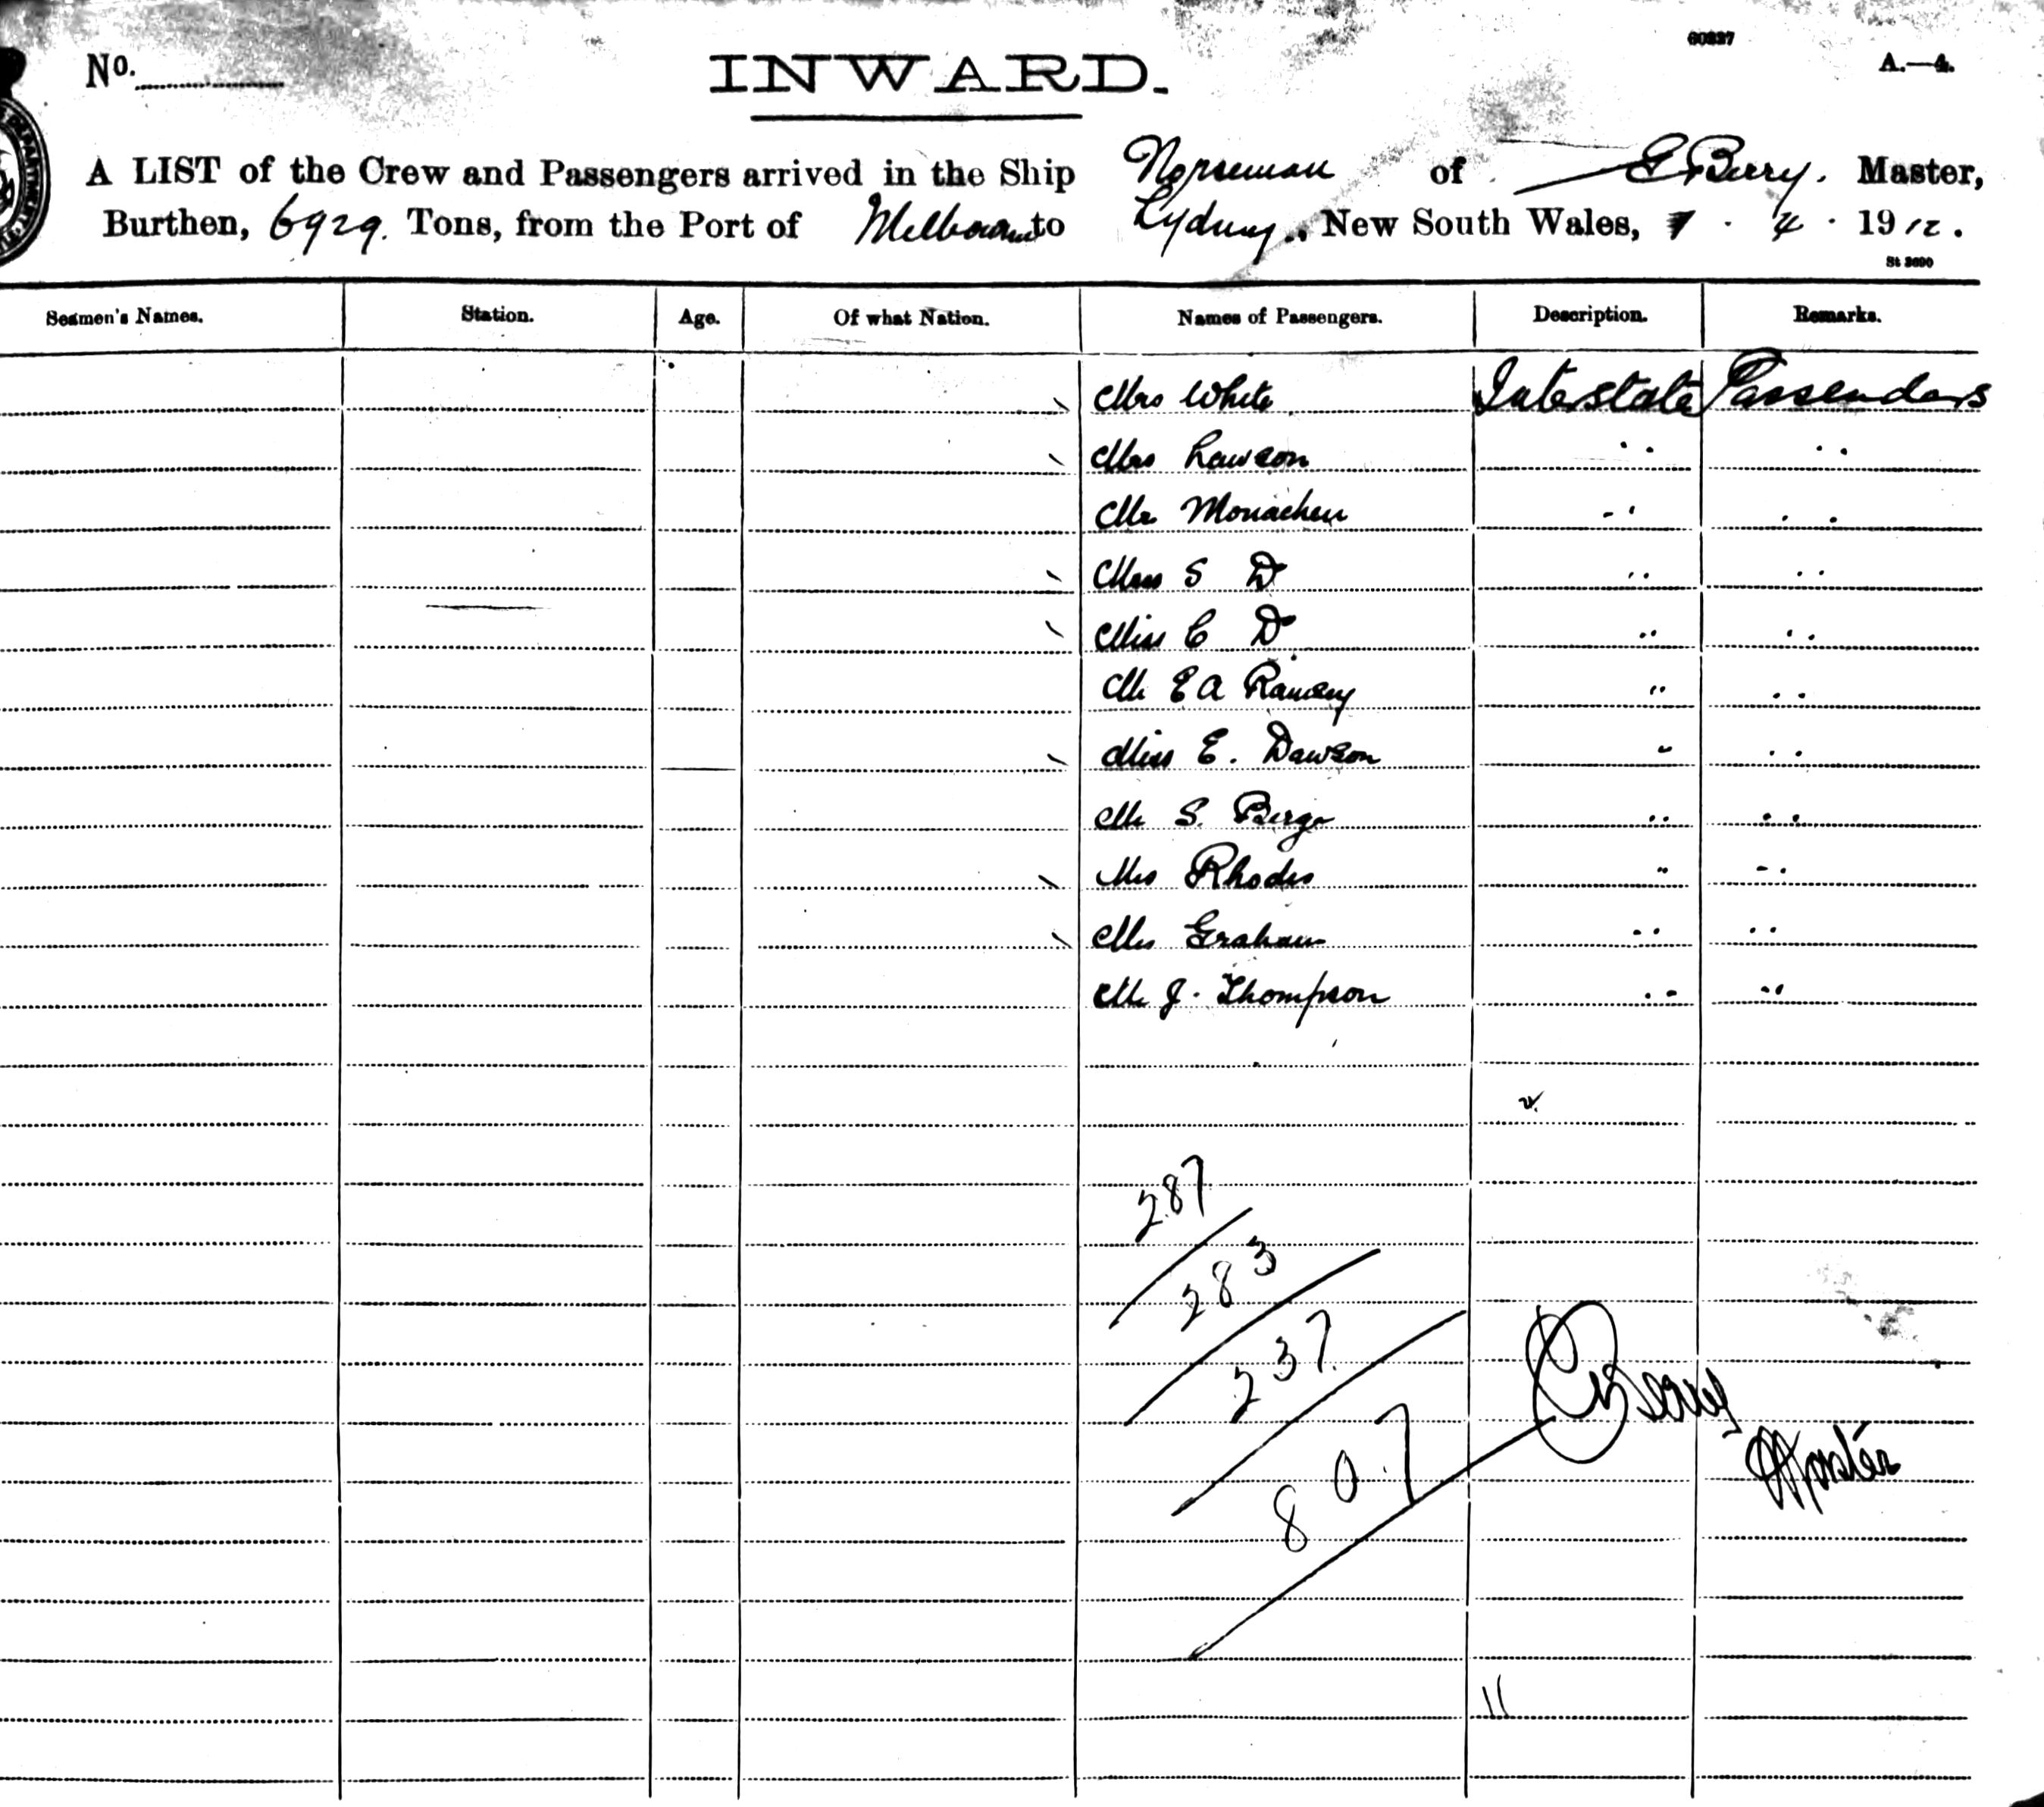 60827
No. INWARD. A.—4.
A LIST of the Crew and Passengers arrived in the Ship Norseman of E Berry. Master,
Burthen, 6929. Tons, from the Port of Melbourne to Sydney, New South Wales, 7 . 4 . 1912.
St 3690
Seamen's Names. Station. Age. Of what Nation. Names of Passengers. Description. Remarks.
Mrs White Interstate Passenders
Mrs Lawson " "
Mr Monachen " "
Miss S D " "
Miss C D " "
Mr E A Ramsey " "
Miss E. Dawson " "
Mr S. Berge " "
Mrs Rhodes " "
Mrs Graham " "
Mr J. Thompson " "
287
283
237
807
E Berry
Master
11